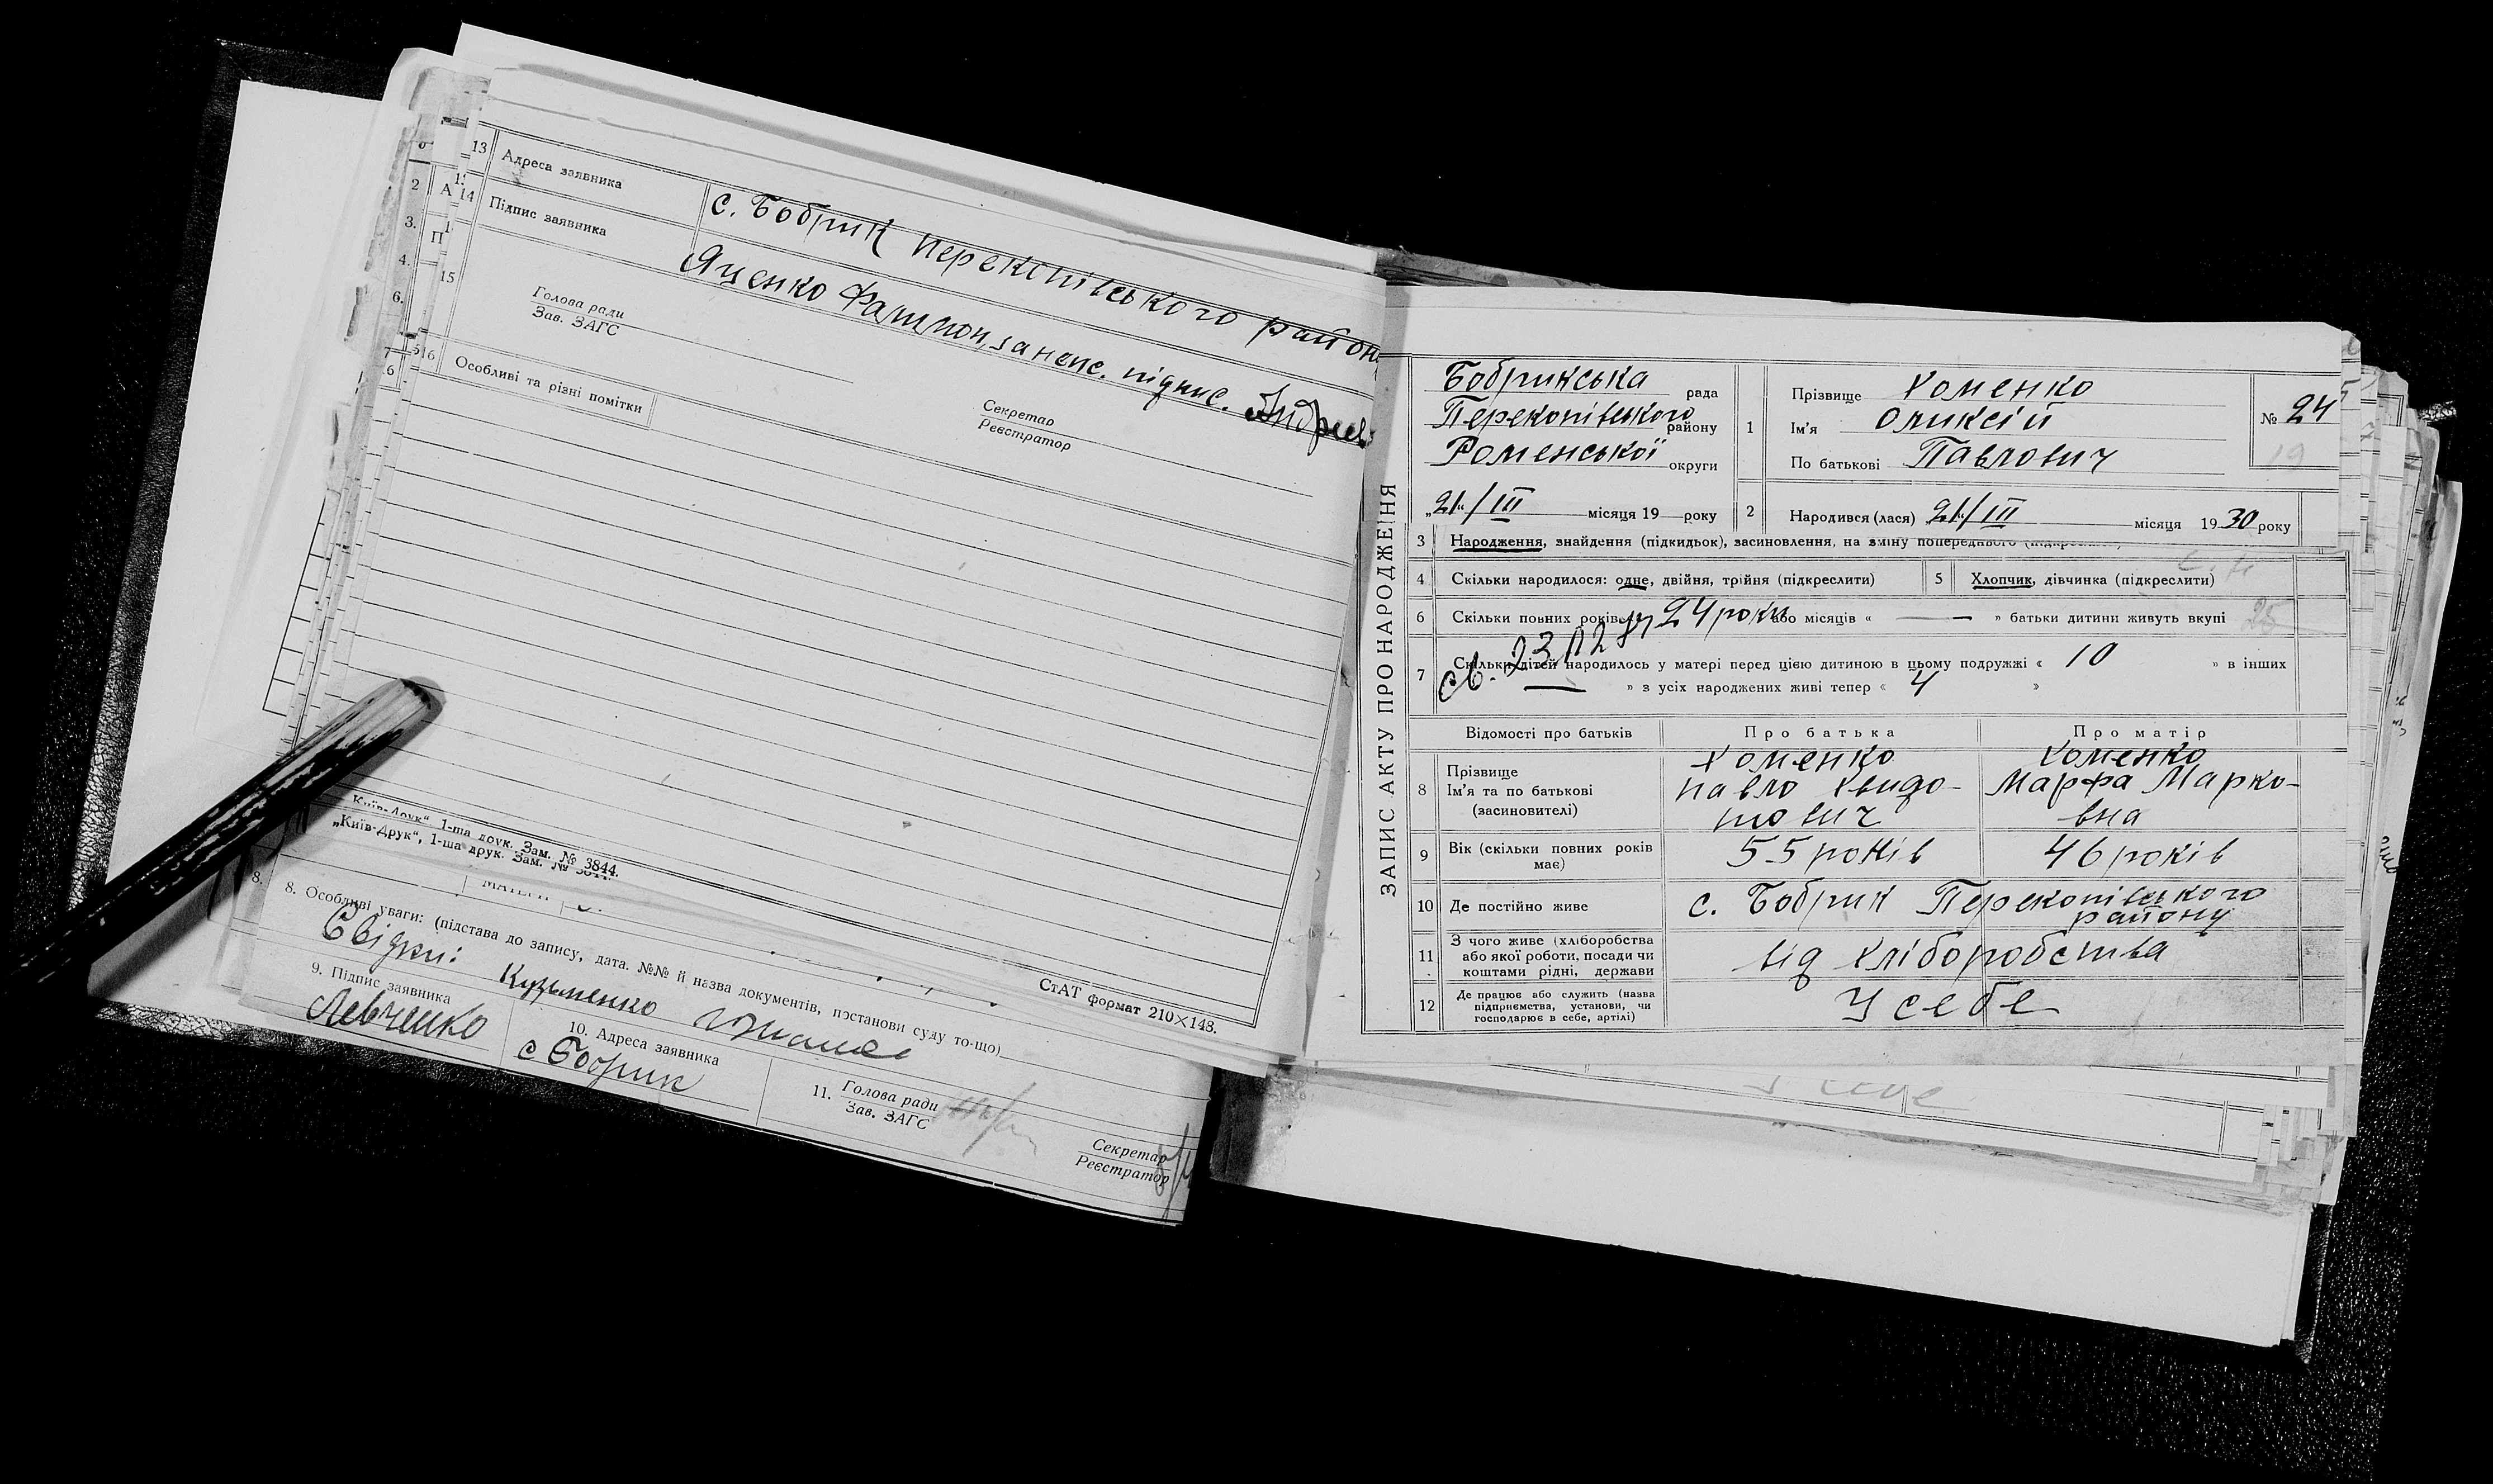 13 Адреса заявника с. Бобрик Перекопівського район
14 Підпис заявника Яценко Филимон, за непс. підпис.
15 Голова ради
Зав. ЗАГС
Секретар
Реєстратор
16 Особливі та різні помітки
„Київ-Друк“, 1-ша друк. Зам. № 3844.
СтАТ формат 210×148.
8. Особливі уваги: (підстава до запису, дата. №№ й назва документів, постанови суду то-що)
Свідки: Кузьменко
9. Підпис заявника
Левченко
10. Адреса заявника
с Бобрик
11. Голова ради
Зав. ЗАГС
Секретар
Реєстратор
ЗАПИС АКТУ ПРО НАРОДЖЕННЯ
Бобрикська рада
Перекопівського району
Роменської округи
„21“/III місяця 19 року
1 Прізвище Хоменко
Ім'я Оликсій
По батькові Павлович
№ 24
19
2 Народився (лася) „21“/III місяця 1930 року
3 Народження, знайдення (підкидьок), засиновлення, на зміну попереднього
4 Скільки народилося: одне, двійня, трійня (підкреслити)
5 Хлопчик, дівчинка (підкреслити)
6 Скільки повних років 24 роки або місяців « — » батьки дитини живуть вкупі
25
св. 23
7 Скільки дітей народилось у матері перед цією дитиною в цьому подружжі « 10 » в інших
— » з усіх народжених живі тепер « 4 »
Відомості про батьків Про батька Про матір
8 Прізвище
Ім'я та по батькові
(засиновителі)
Хоменко
Павло Хвидо-
тович
Хоменко
Марфа Марко-
вна
9 Вік (скільки повних років
має)
55 років 46 років
10 Де постійно живе с. Бобрик Перекопівського
району
11 З чого живе (хліборобства
або якої роботи, посади чи
коштами рідні, держави
від хліборобства
12 Де працює або служить (назва
підприємства, установи, чи
господарює в себе, артілі)
У себе